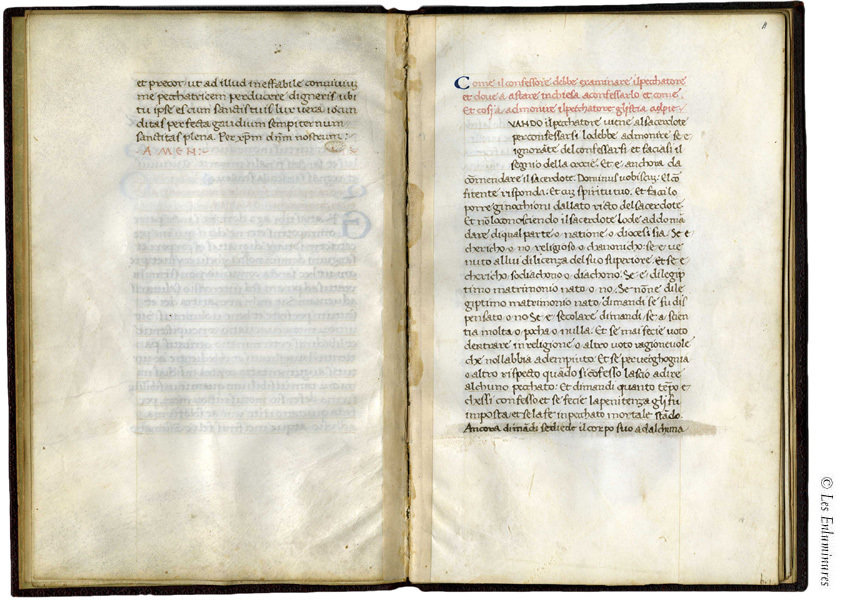 et precor ut ad illud ineffabile conuiuiũ
me pecchatricem perducere digneris ubi
tu ipse es cum sanctis tuis lux vera iocun
ditas perfecta gaudium sempiternum
sanctitas plena. Per xpm dñm nostrum:
AMEN:
Come il confessore debbe examinare il pecchatore
et doue a astare in chiesa a confessarlo et come
Et cosi admonire il pecchatore
VANDO il pecchatore viene al sacerdote
per confessarsi lo debbe admonire se e
ignorãte del confessarsi et faciasi il
segnio della ✝ocie. Et e anchora da
cõmendare il sacerdote. Dominus uobiscũ. El cõ
fitente risponda: Et cũ spiritu tuo. et faccilo
porre ginochioni dallato ricto del sacerdote.
Et nõ lo conosciendo il sacerdote lo de addomã
dare di qual parte o natione o diocesi sia. Se e
chericho o no. religioso o chanonicho: se e ve
nuto a llui di licenza del suo superiore. Et se e
chericho sodiachono o diachono. Se e di legip
timo matrimonio nato o no. Se none di le
giptimo matrimonio nato dimandi se fu dis
pensato o no Se e secolare dimandi se a scien
tia molta o pocha o nulla. Et se mai fecie voto
dentrare in religione o altro voto ragionevole
che nollabbia adempiuto. Et se per verghognia
o altro rispecto quãdo si cõfesso lascio a dire
alchuno pechato: et dimandi quanto tẽpo e
chessi confesso et se fecie la penitenza gli fu
imposta. et se la fe in pecchato mortale stãdo.
Ancora dimãdi se diede il corpo suo ad alchuna
© Les Enluminures